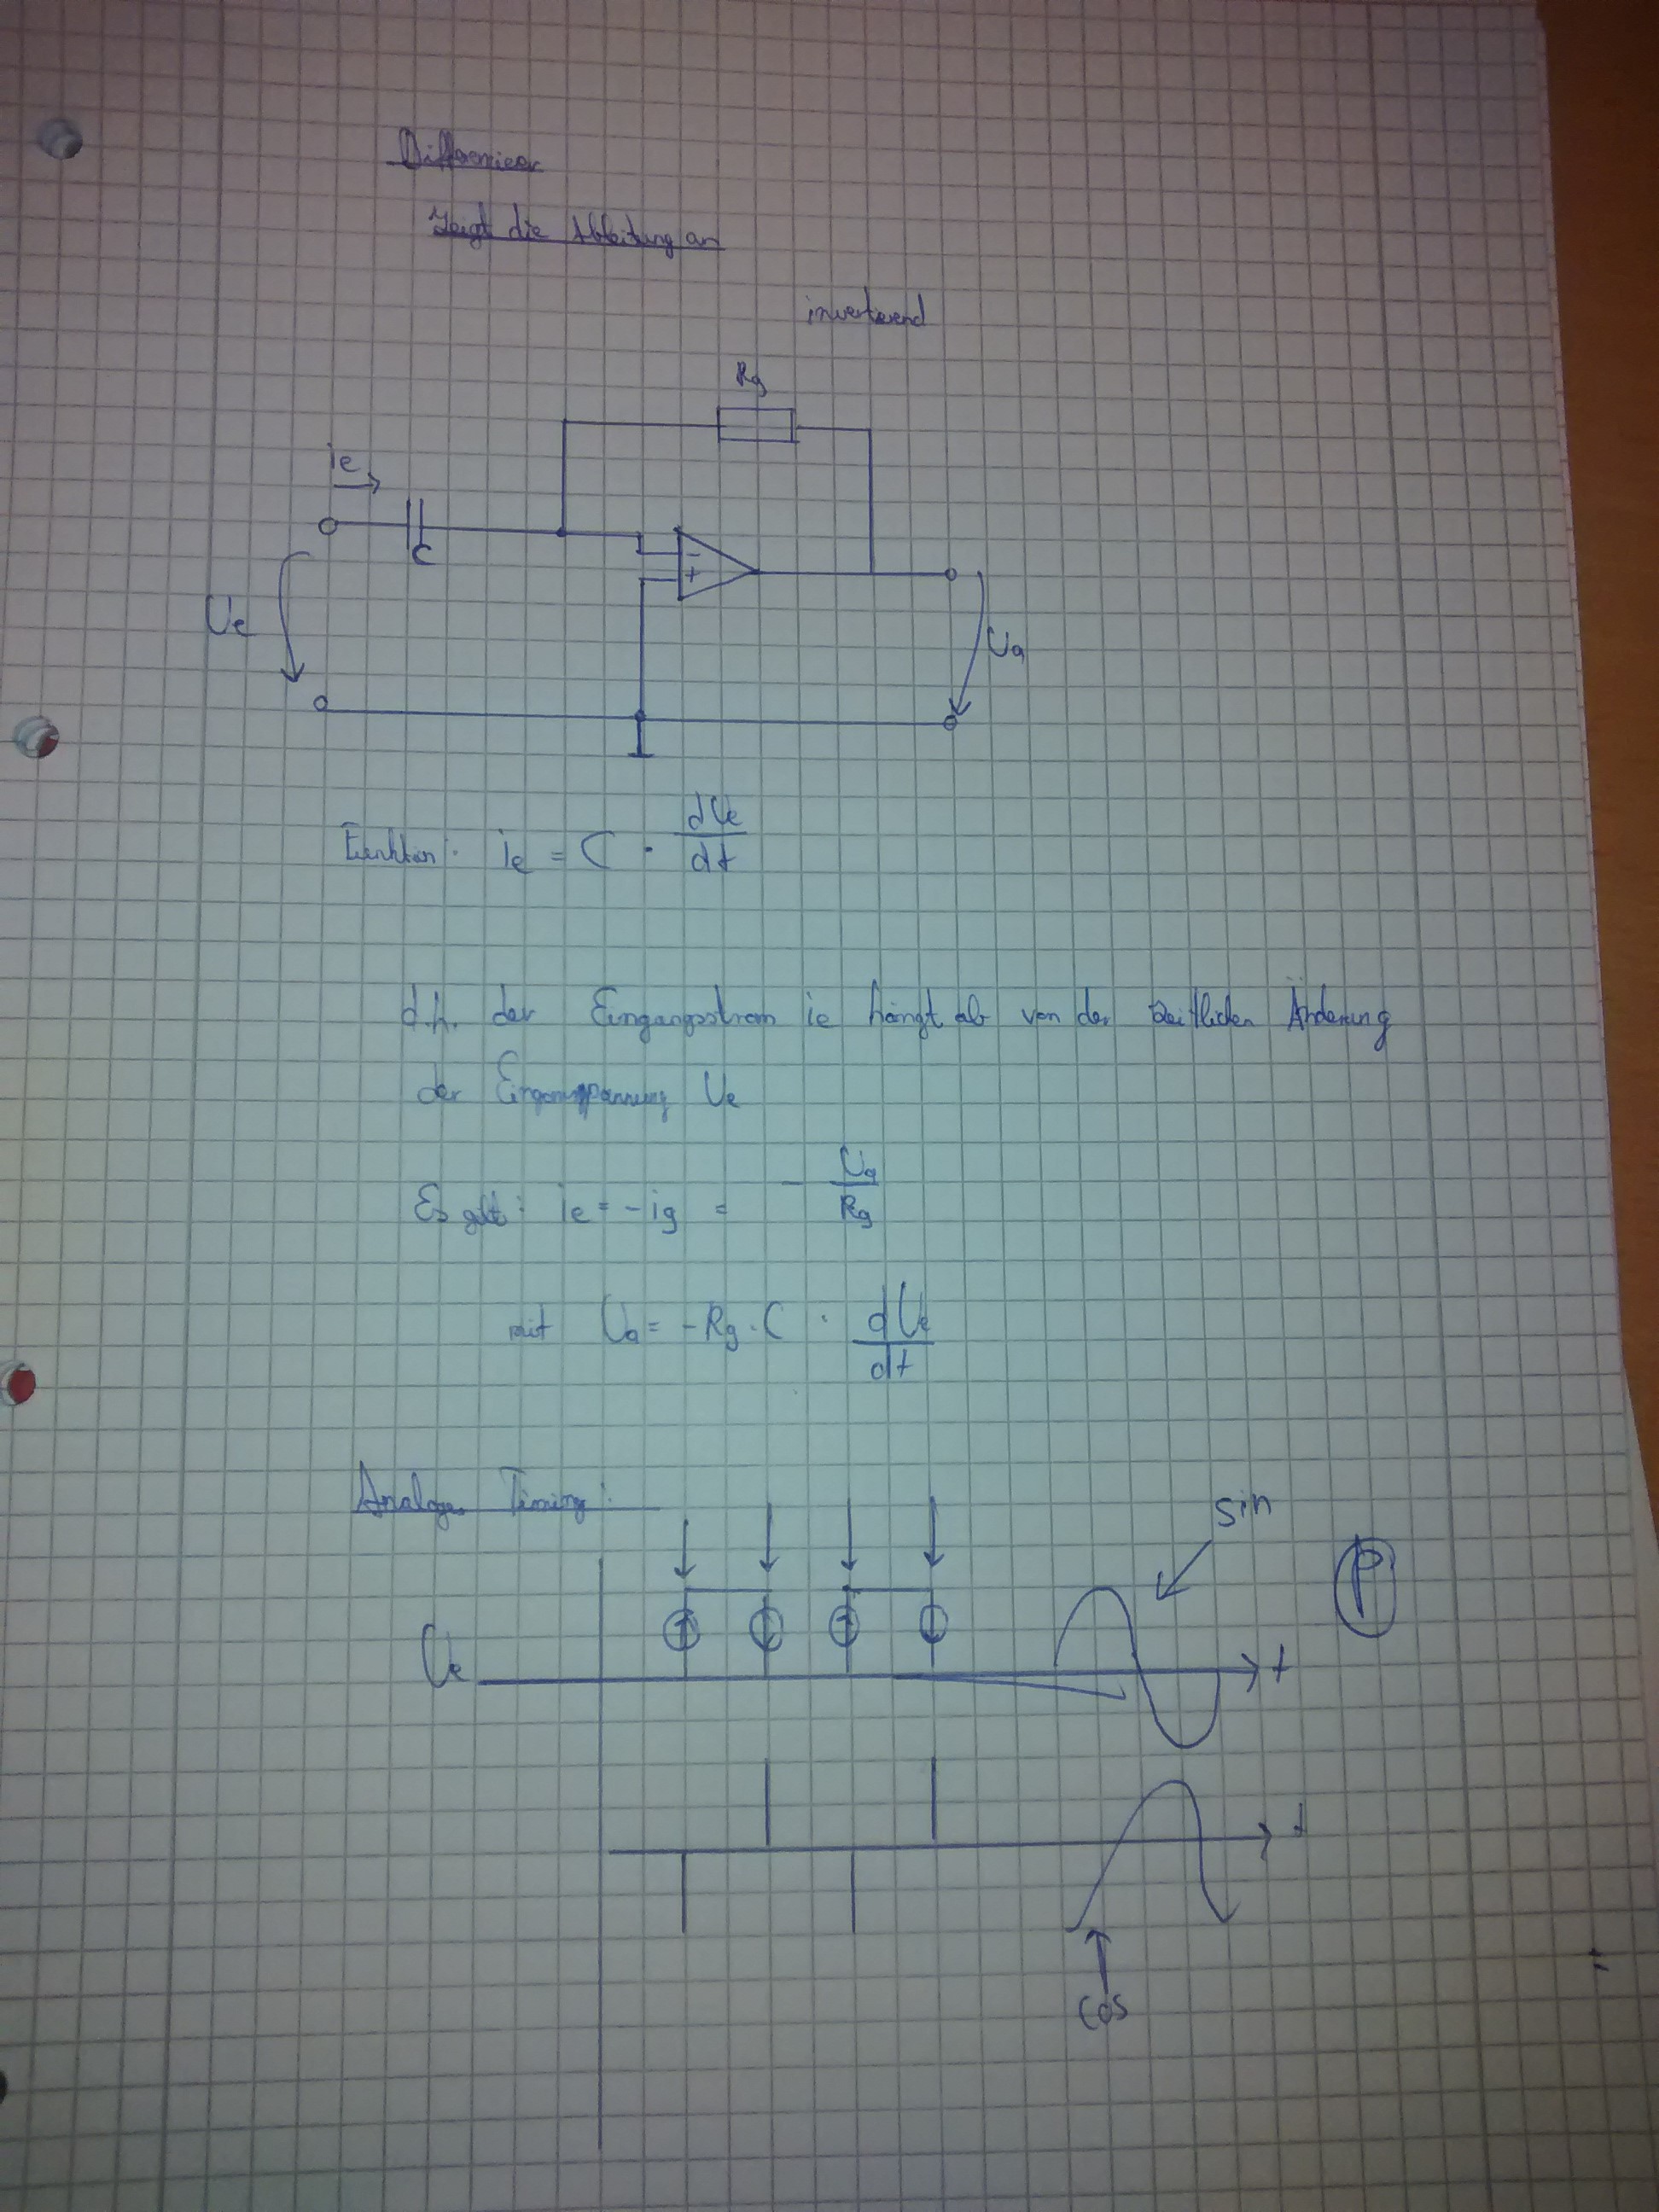 Differenzier
Zeigt die Ableitung an
invertierend
Rg
ie
C
-
+
Ue
Ua
Funktion: ie = C · dUe/dt
d.h. der Eingangsstrom ie hängt ab von der zeitlichen Änderung
der Eingangspannung Ue
Es gilt: ie = -ig = - Ua/Rg
mit Ua = -Rg · C · dUe/dt
Analoges Timing:
sin
P
Ue
t
t
cos